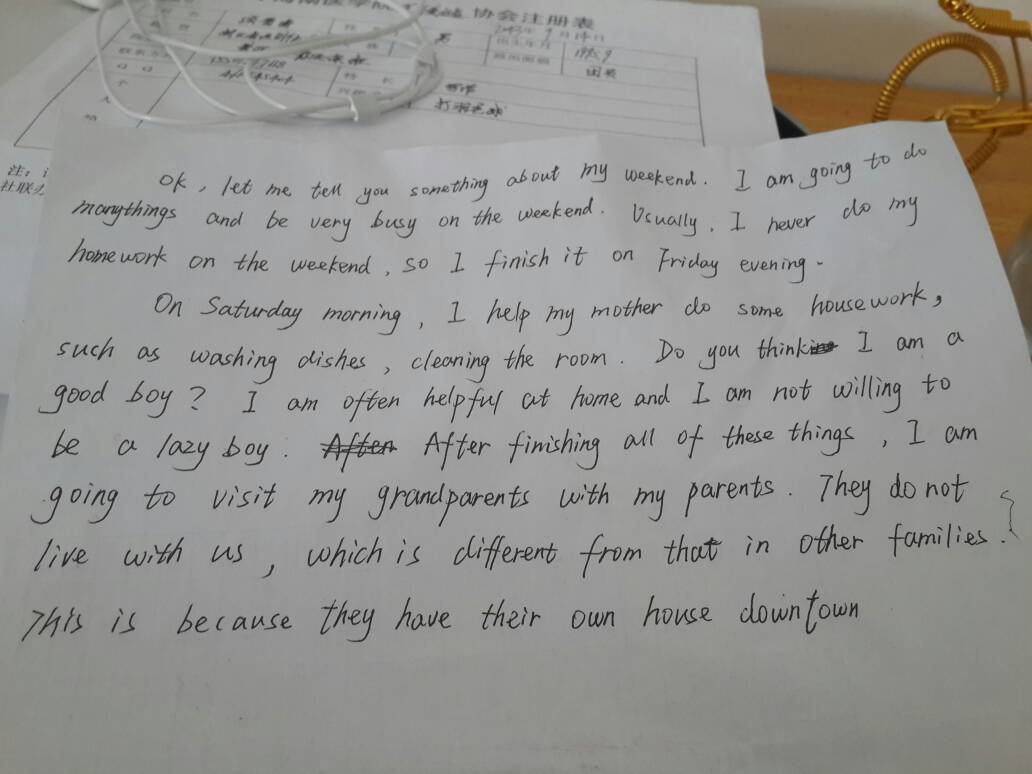 协会注册表
OK, let me tell you something about my weekend. I am going to do
manythings and be very busy on the weekend. Usually, I never do my
homework on the weekend, so I finish it on Friday evening.
On Saturday morning, I help my mother do some housework,
such as washing dishes, cleaning the room. Do you think I am a
good boy? I am often helpful at home and I am not willing to
be a lazy boy. After After finishing all of these things, I am
going to visit my grandparents with my parents. They do not
live with us, which is different from that in other families.
This is because they have their own house downtown